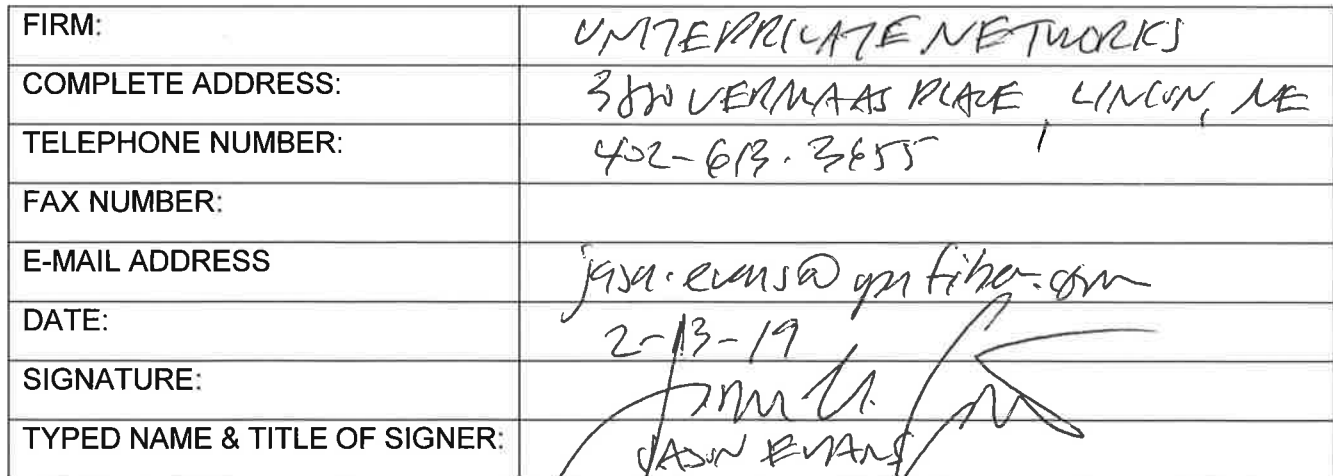 FIRM: UNITE PRIVATE NETWORKS
COMPLETE ADDRESS: VERMAAS PLACE, LINCOLN, NE
TELEPHONE NUMBER: 402-613.3655
FAX NUMBER:
E-MAIL ADDRESS jason.evans@upnfiber.com
DATE: 2-13-19
SIGNATURE:
TYPED NAME & TITLE OF SIGNER: JASON EVANS